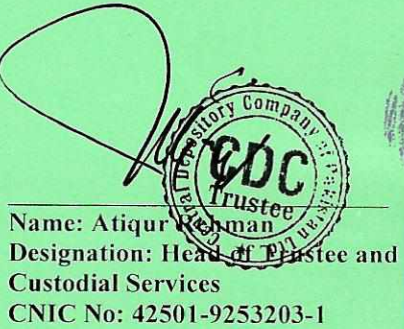 Central Depository Company of Pakistan Ltd.
CDC
Trustee
Name: Atiqur Rehman
Designation: Head of Trustee and
Custodial Services
CNIC No: 42501-9253203-1